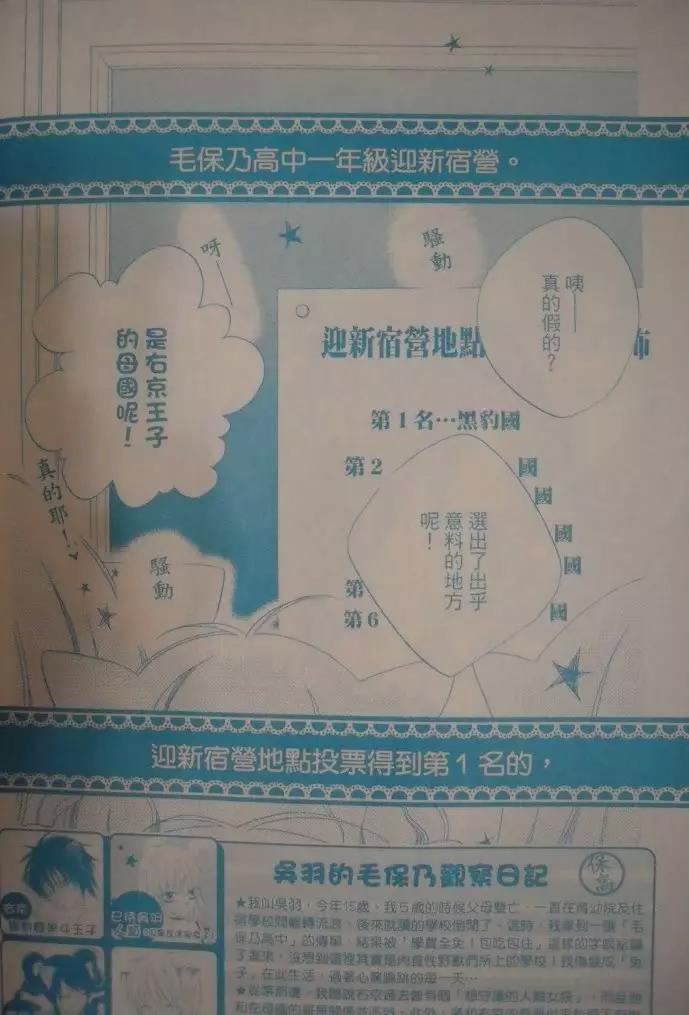 毛保乃高中一年級迎新宿營。
咦──
真的假的？
騷動
呀──
是右京王子
的母國呢！
真的耶！
騷動
迎新宿營地點
第1名…黑豹國
第2
國
國
國
國
第
第6
國
選出了出乎
意料的地方
呢！
迎新宿營地點投票得到第1名的，
吳羽的毛保乃觀察日記
保高
★我叫吳羽，今年15歲。我5歲的時候父母雙亡，一直在育幼院及住
宿學校間輾轉流浪，後來就讀的學校倒閉了。這時，我拿到一張「毛
保乃高中」的傳單，結果被「學費全免！包吃包住」這樣的字眼給騙
了進來，沒想到這裡其實是肉食性野獸們所上的學校！我偽裝成「兔
子」在此生活，過著心驚膽跳的每一天…